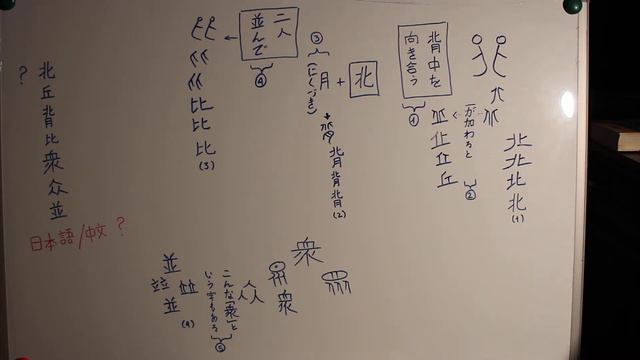 背中を
向き合う
①
一が加わると
②
北
(1)
丘
③
月
+
北
(にくづき)
背
(2)
二人
並んで
④
比
比
比
(3)
?
北
丘
背
比
衆
众
並
日本語/中文?
衆
衆
こんな「衆」と
いう字もある
⑤
並
並
(4)